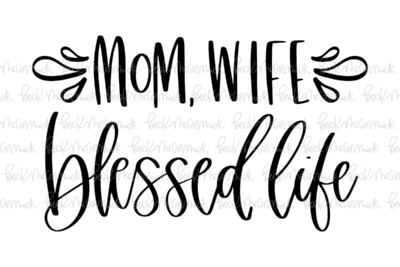 MOM, WIFE
blessed life